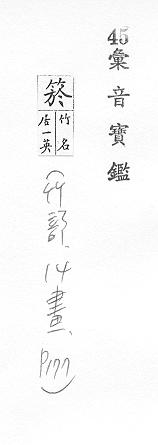 45彙音寶鑑
箊
竹名
居一英
(竹部、14畫、P177)